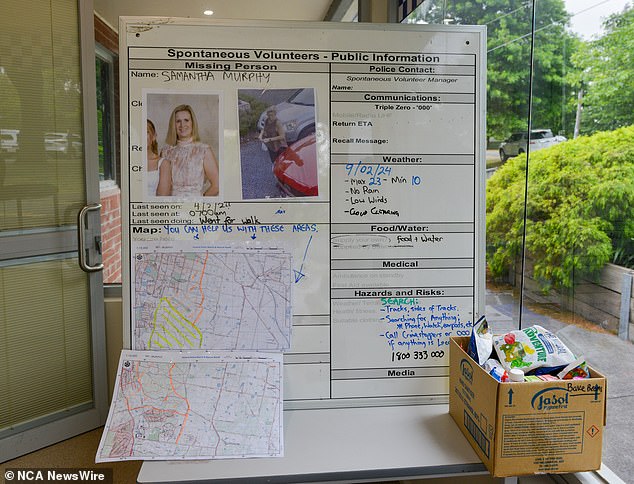 Spontaneous Volunteers - Public Information
Missing Person
Name: SAMANTHA MURPHY
Last seen on: 4/2/24
Last seen at: 0700am
Last seen doing: Went for walk
Map: YOU CAN HELP US WITH THESE AREAS.
Police Contact:
Spontaneous Volunteer Manager
Name:
Communications:
Triple Zero - "000"
Return ETA
Recall Message:
Weather:
9/02/24
- Max 23 - Min 10
- No Rain
- Low Winds
Food/Water:
Food + Water
Medical
Hazards and Risks:
SEARCH:
- Tracks, sides of Tracks.
- Searching for Anything;
* Phone, Watch, earpods, etc
- Call Crimestoppers or 000
if anything is
1800 333 000
Media
Jasol
NCA NewsWire